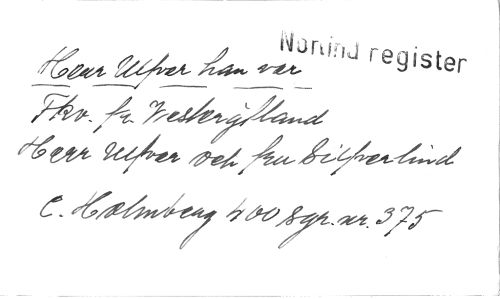 Norlind register
Herr Ulfver han var
Fkv. fr. Westergötland
Herr Ulfver och fru Silfverlind
C. Holmberg 400 Sgr. nr. 375